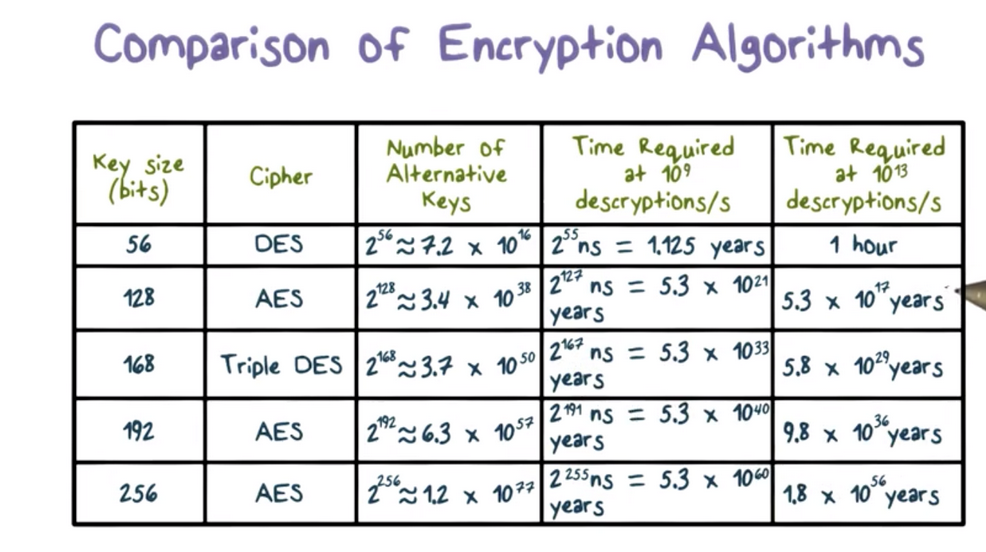 Comparison of Encryption Algorithms
Key size
(bits)
Cipher
Number of
Alternative
Keys
Time Required
at 10⁹
descryptions/s
Time Required
at 10¹³
descryptions/s
56
DES
2⁵⁶ ≈ 7.2 x 10¹⁶
2⁵⁵ ns = 1.125 years
1 hour
128
AES
2¹²⁸ ≈ 3.4 x 10³⁸
2¹²⁷ ns = 5.3 x 10²¹
years
5.3 x 10¹⁷ years
168
Triple DES
2¹⁶⁸ ≈ 3.7 x 10⁵⁰
2¹⁶⁷ ns = 5.3 x 10³³
years
5.8 x 10²⁹ years
192
AES
2¹⁹² ≈ 6.3 x 10⁵⁷
2¹⁹¹ ns = 5.3 x 10⁴⁰
years
9.8 x 10³⁶ years
256
AES
2²⁵⁶ ≈ 1.2 x 10⁷⁷
2²⁵⁵ ns = 5.3 x 10⁶⁰
years
1.8 x 10⁵⁶ years